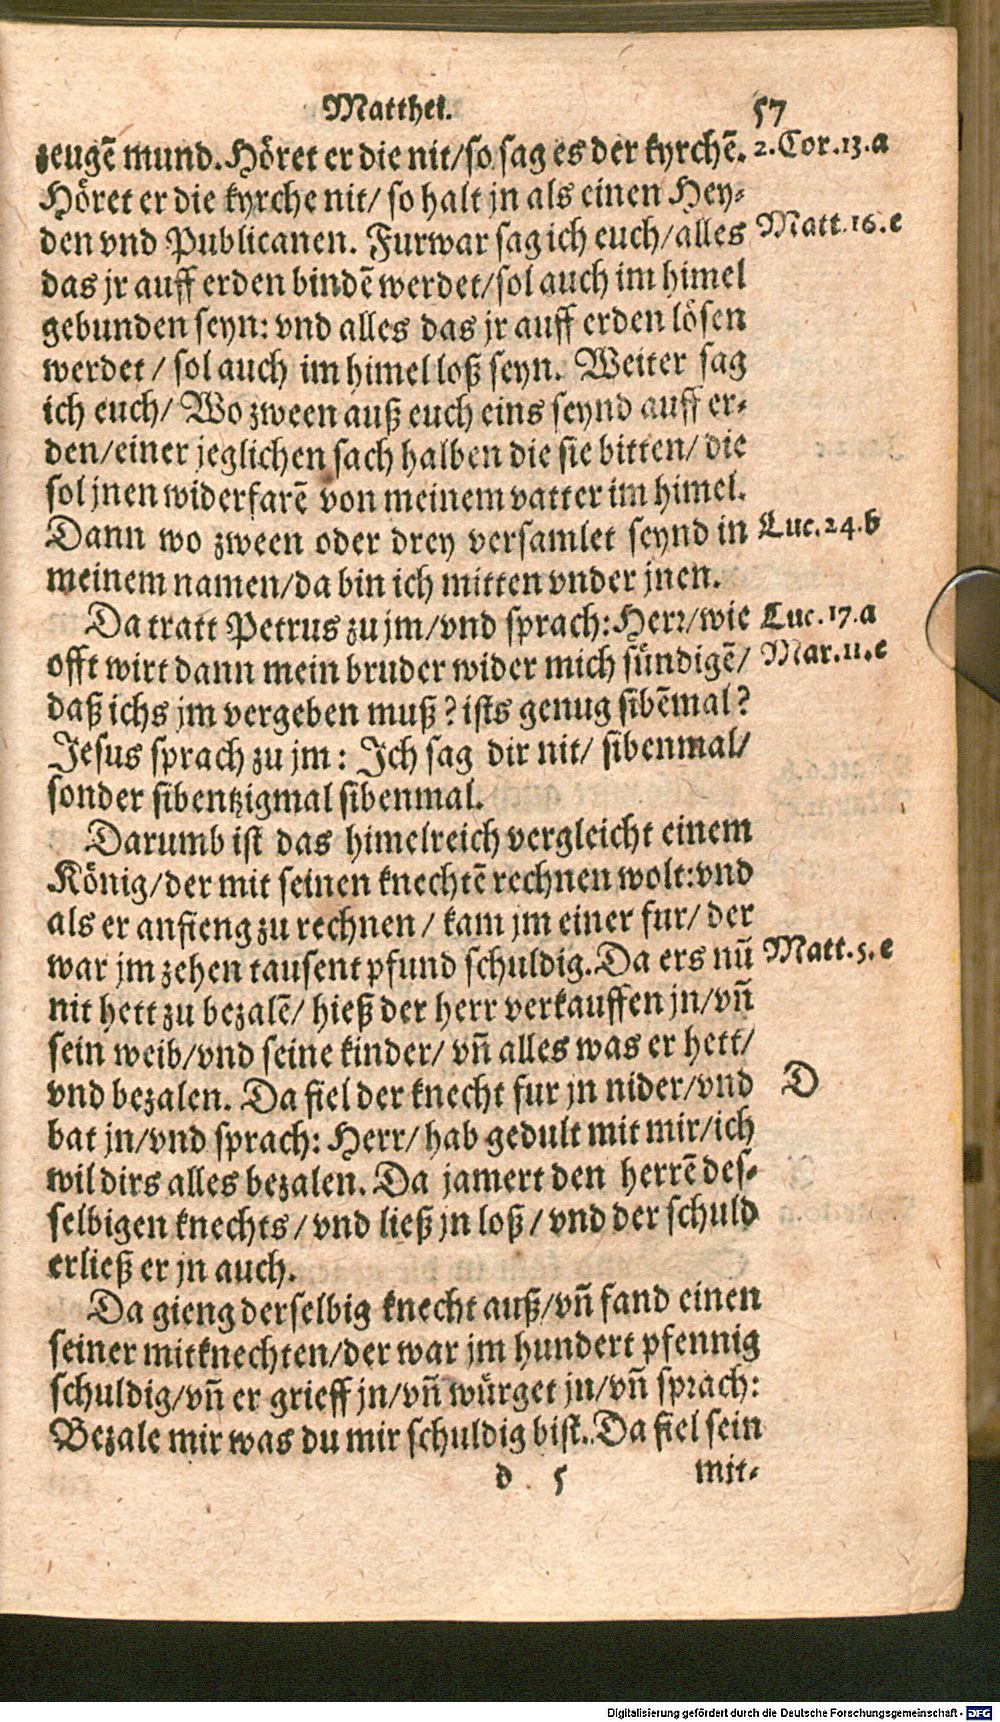 Matthei. 57
zeugẽ mund. Höret er die nit/ so sag es der kyrchẽ. 2.Cor.13.a
Höret er die kyrche nit/ so halt jn als einen Hey-
den vnd Publicanen. Furwar sag ich euch/ alles Matt.16.c
das jr auff erden bindẽ werdet/ sol auch im himel
gebunden seyn: vnd alles das jr auff erden lösen
werdet/ sol auch im himel loß seyn. Weiter sag
ich euch/ Wo zween auß euch eins seynd auff er-
den/ einer jeglichen sach halben die sie bitten/ die
sol jnen widerfarẽ von meinem vatter im himel.
Dann wo zween oder drey versamlet seynd in Luc.24.b
meinem namen/ da bin ich mitten vnder jnen.
Da tratt Petrus zu jm/ vnd sprach: Herr/ wie Luc.17.a
offt wirt dann mein bruder wider mich sündigẽ/ Mar.11.c
daß ichs jm vergeben muß? ists genug sibẽmal?
Jesus sprach zu jm: Ich sag dir nit/ sibenmal/
sonder sibentzigmal sibenmal.
Darumb ist das himelreich vergleicht einem
König/ der mit seinen knechtẽ rechnen wolt: vnd
als er anfieng zu rechnen/ kam jm einer fur/ der
war jm zehen tausent pfund schuldig. Da ers nũ Matt.5.c
nit hett zu bezalẽ/ hieß der herr verkauffen jn/ vñ
sein weib/ vnd seine kinder/ vñ alles was er hett/
vnd bezalen. Da fiel der knecht fur jn nider/ vnd D
bat jn/ vnd sprach: Herr/ hab gedult mit mir/ ich
wil dirs alles bezalen. Da jamert den herrẽ des-
selbigen knechts/ vnd ließ jn loß/ vnd der schuld
erließ er jn auch.
Da gieng derselbig knecht auß/ vñ fand einen
seiner mitknechten/ der war jm hundert pfennig
schuldig/ vñ er grieff jn/ vñ würget jn/ vñ sprach:
Bezale mir was du mir schuldig bist. Da fiel sein
d 5 mit-
Digitalisierung gefördert durch die Deutsche Forschungsgemeinschaft - DFG